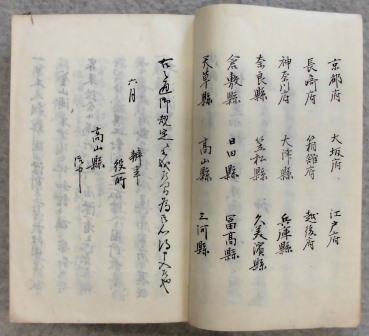 京都府 大坂府 江戸府
長崎府 箱館府 越後府
神奈川府 大津縣 兵庫縣
奈良縣 笠松縣 久美濱縣
倉敷縣 日田縣 冨高縣
天草縣 高山縣 三河縣
右之通御規定相成候間為心得申入候也
六月 辨事
役所
高山縣
御中